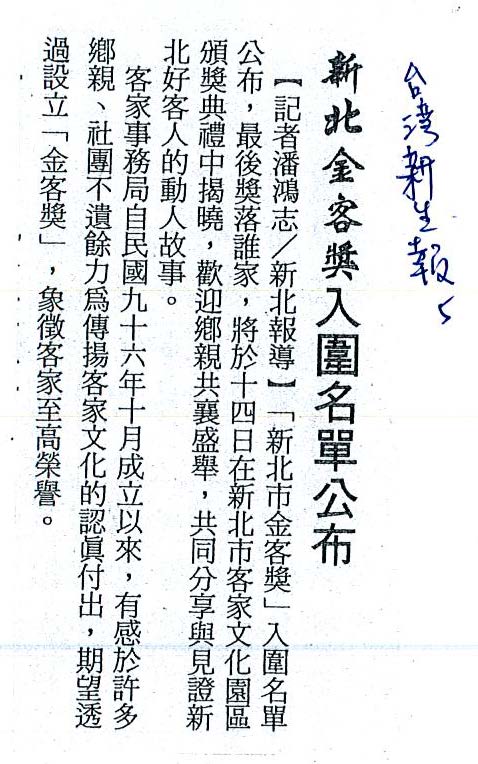 台灣新生報 5
新北金客獎入圍名單公布
【記者潘鴻志／新北報導】「新北市金客獎」入圍名單
公布，最後獎落誰家，將於十四日在新北市客家文化園區
頒獎典禮中揭曉，歡迎鄉親共襄盛舉，共同分享與見證新
北好客人的動人故事。
客家事務局自民國九十六年十月成立以來，有感於許多
鄉親、社團不遺餘力為傳揚客家文化的認真付出，期望透
過設立「金客獎」，象徵客家至高榮譽。